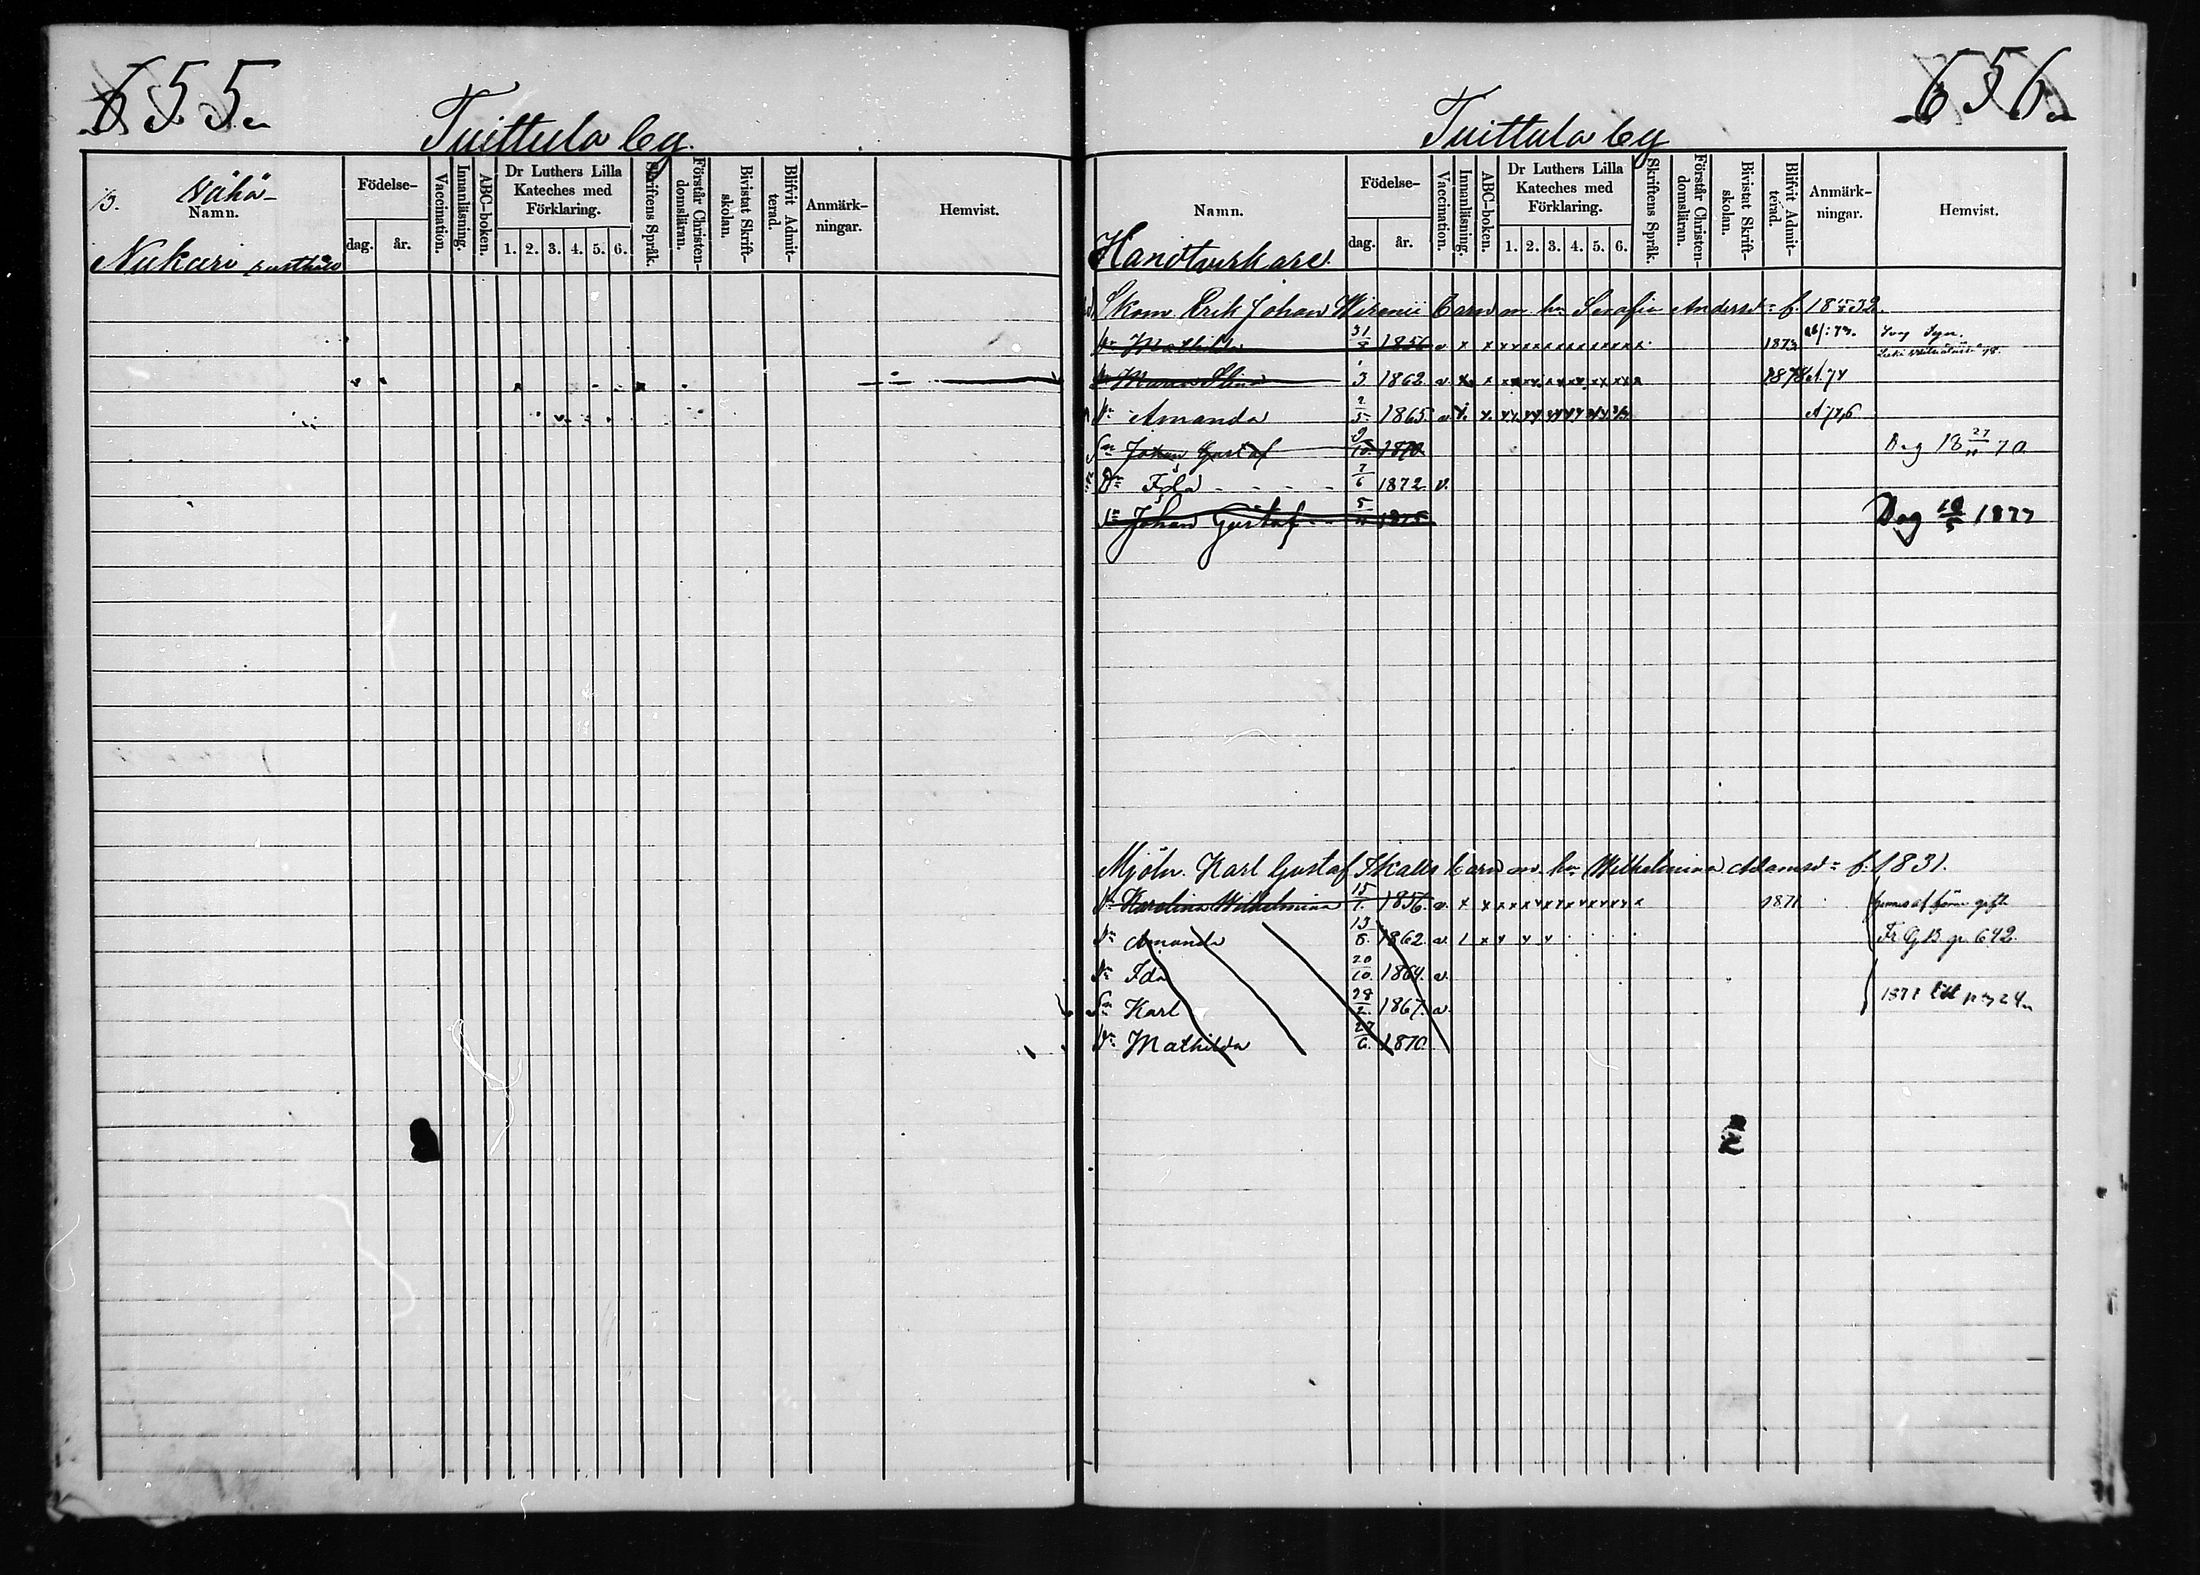 655.
Tuittula by.
13. Vähä-
Namn.
Födelse-
dag. år.
Vaccination.
Innanläsning.
ABC-boken.
Dr Luthers Lilla Kateches med Förklaring.
1. 2. 3. 4. 5. 6.
Skriftens Språk.
Förstår Christen-domsläran.
Bivistat Skrift-skolan.
Blifvit Admit-terad.
Anmärk-ningar.
Hemvist.
Nukari rusthåll
656.
Tuittula by
Namn.
Födelse-
dag. år.
Vaccination.
Innanläsning.
ABC-boken.
Dr Luthers Lilla Kateches med Förklaring.
1. 2. 3. 4. 5. 6.
Skriftens Språk.
Förstår Christen-domsläran.
Bivistat Skrift-skolan.
Blifvit Admit-terad.
Anmärk-ningar.
Hemvist.
Handtverkare.
Skom. Erik Johan Wirenii barn m. hu Serafia Andersd:r f. 1832.
Dr Mathilda 1856 v x x 1873
Dr Maria 3 1862 v. x x 1878
Dr Amanda 2/5 1865 v.
Sn Johan Gustaf 9/10 1870 Dog 18 27/11 70
Dr Ida - - - - 7/6 1872 v.
Sn Johan Gustaf - - 5 1875 Dog 10/5 1877
Mjöln. Karl Gustaf barn m. hu Wilhelmina Adamsd:r f. 1831.
Dr Karolina Wilhelmina 15/1. 1856. v. x x 1871
Dr Amanda 13/8. 1862. v. Fr G B p. 642.
Dr Ida 20/10. 1864. v.
Sn Karl 28/2. 1867. v.
Dr Mathilda 27/6. 1870